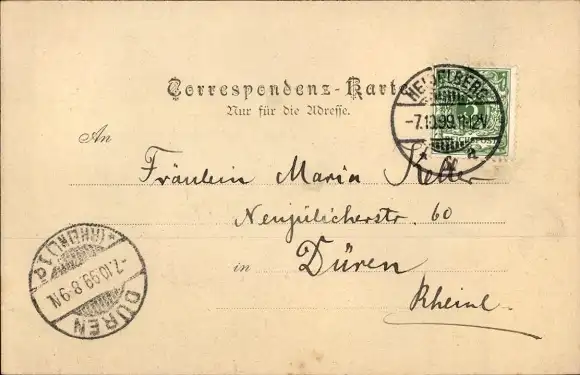 Correspondenz-Karte
Nur für die Adresse.
HEIDELBERG
-7.10.99.11-12V.
An
Fräulein Maria Keller
Neujülicherstr. 60
in Düren
Rheinl.
DÜREN
-7.10.99.8-9N.
*(RHEINL.)1d